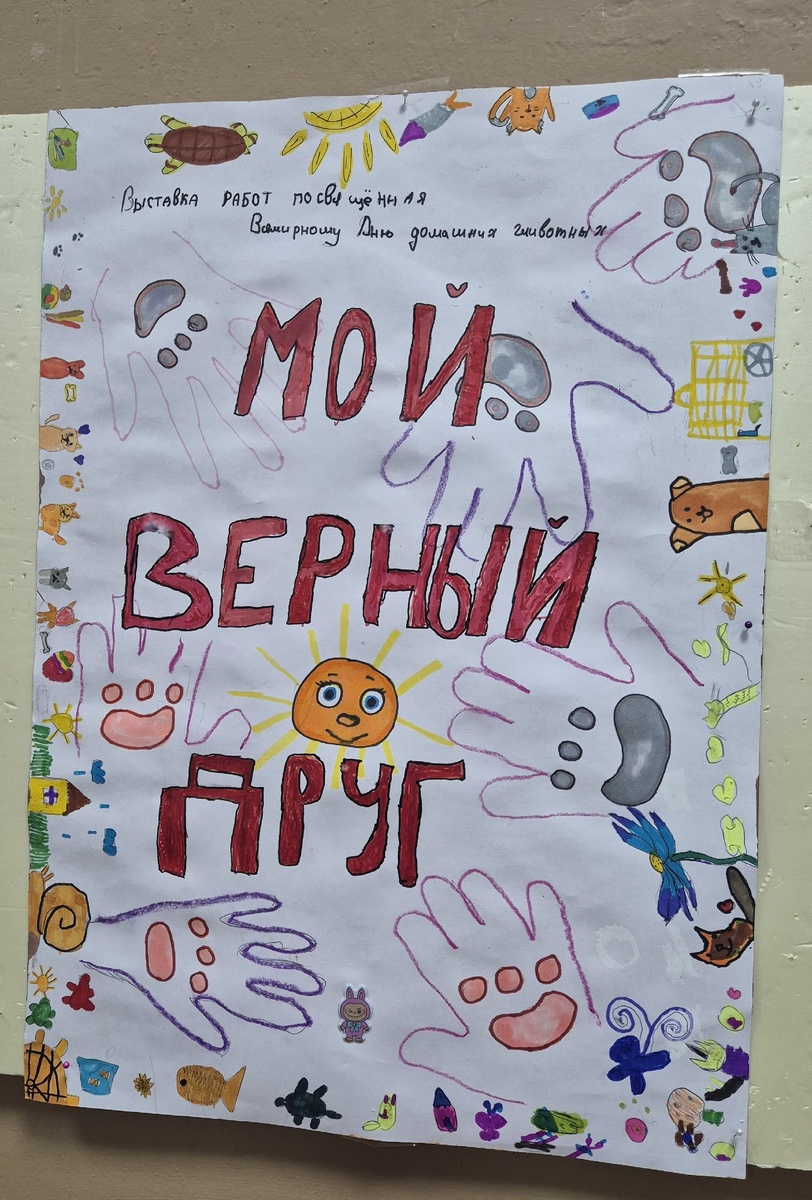 Выставка работ посвящённая
Всмирному Дню домашних животных
МОЙ
ВЕРНЫЙ
ДРУГ